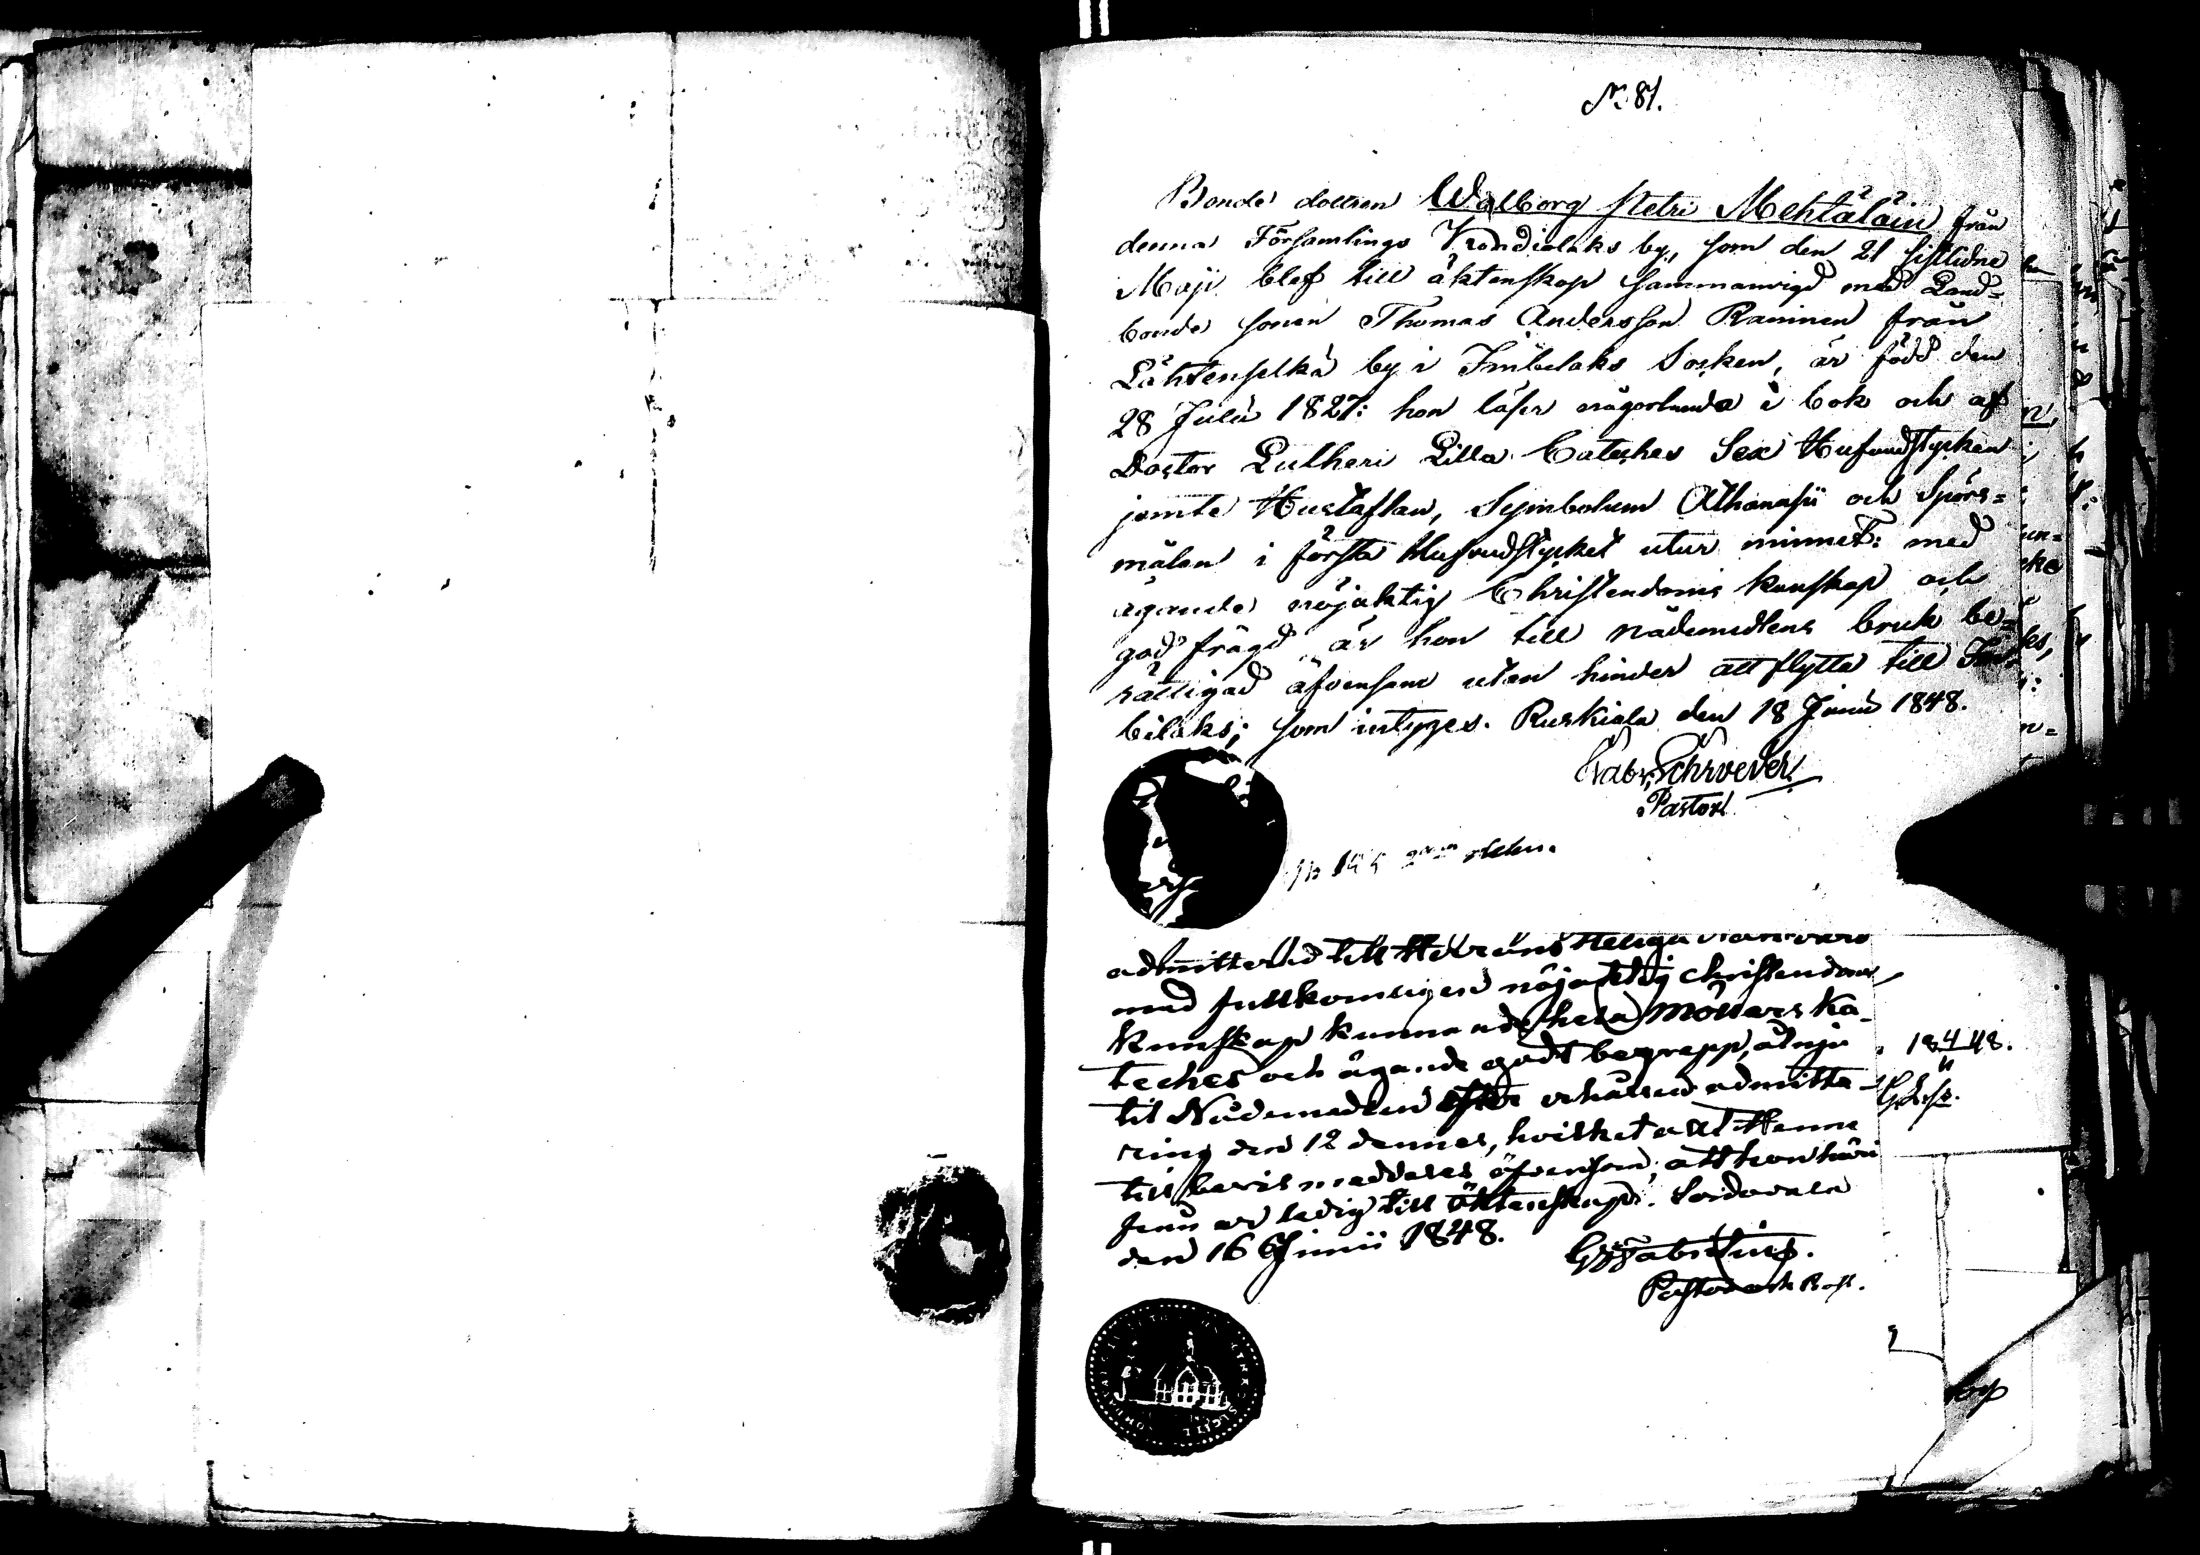 N. 81.
Bonde dottren Walborg Petri Mehtäläin från
denna Församlings Kondialaks by, som den 21 sistlidne
Maji blef till äktenskap sammanvigd med Land-
bonde sonen Thomas Andersson Raninen från
Lähtenselkä by i Imbelaks Socken, är född den
28 Julii 1827: hon läser någorlunda i bok och af
Doctor Lutheri Lilla Cateches Sex Hufvudstycken
jemte Hustaflan, Symbolum Athanasii och Spörs-
målen i första Hufvudstycket utur minnet: med
ägande nöjaktig Christendoms kunskap och
god frägd är hon till nådemedlens bruk be-
rättigad äfvensom utan hinder att flytta till Im-
bilaks; som intygas. Ruskiala den 18 Junii 1848.
Pastor
admitterad till Herrans Heliga Nattvard
med fullkomligen nöjaktig christendoms
kunskap kunnande hela Möllers Ka-
teches och ägande godt begrepp, åtnju
tit Nådemedlen efter erhållen admitte-
ring den 12 dennes, hvilket att Henne
till bevis meddelas äfvensom, att hon häri
från är ledig till äktenskap. Sordavala
den 16 Junii 1848.
Pastor och Prost.
18 4/11 48.